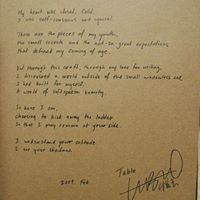 My heart was closed, cold.
I was self-conscious and cynical.
These are the pieces of my youth,
the small records and the not-so-great expectations
that defined my coming of age.
But through this craft, through my love for writing,
I discovered a world outside of the small windowless cell
I had built for myself.
A world of soft-spoken beauty.
So here I am,
choosing to kick away the ladder
so that I may remain at your side.
I understand your solitude
I see your shadows.
Tablo
2009 Feb.